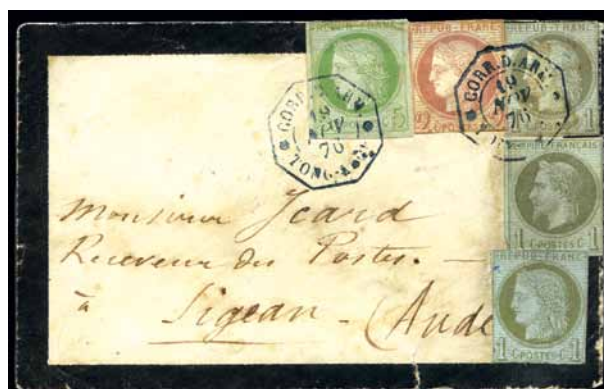 REPUB · FRANC
5
REPUB · FRANC
2 C POSTES 2
REPUB · FRANC
1
CORR. D. ARM.
19
NOV
76
TONG-
CORR. D. ARM.
19
NOV
76
FRANÇAIS
1 C POSTES C 1
REPUB · FRANC
1 C POSTES C 1
Monsieur Icard
Receveur des Postes. —
à Sigean - (Aude